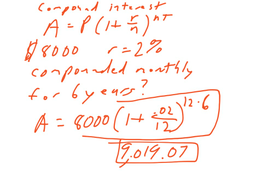 Compound interest
A = P(1 + r/n)^nT
$8000 r = 2%
compounded monthly
for 6 years?
A = 8000(1 + .02/12)^12·6
9,019.07